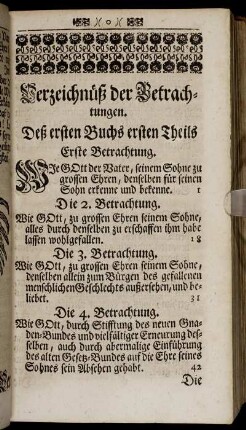 Verzeichnüß der Betrach-
tungen.
Deß ersten Buchs ersten Theils
Erste Betrachtung.
WIe GOtt der Vater, seinem Sohne zu
grossen Ehren, denselben für seinen
Sohn erkenne und bekenne. 1
Die 2. Betrachtung.
Wie GOtt, zu grossen Ehren seinem Sohne,
alles durch denselben zu erschaffen ihm habe
lassen wohlgefallen. 18
Die 3. Betrachtung.
Wie GOtt, zu grossen Ehren seinem Sohne,
denselben allein zum Bürgen des gefallenen
menschlichen Geschlechts außersehen, und be-
liebet. 31
Die 4. Betrachtung.
Wie GOtt, durch Stifftung des neuen Gna-
den-Bundes und vielfältiger Erneurung des-
selben, auch durch abermalige Einführung
des alten Gesetz-Bundes auf die Ehre seines
Sohnes sein Absehen gehabt. 42
Die